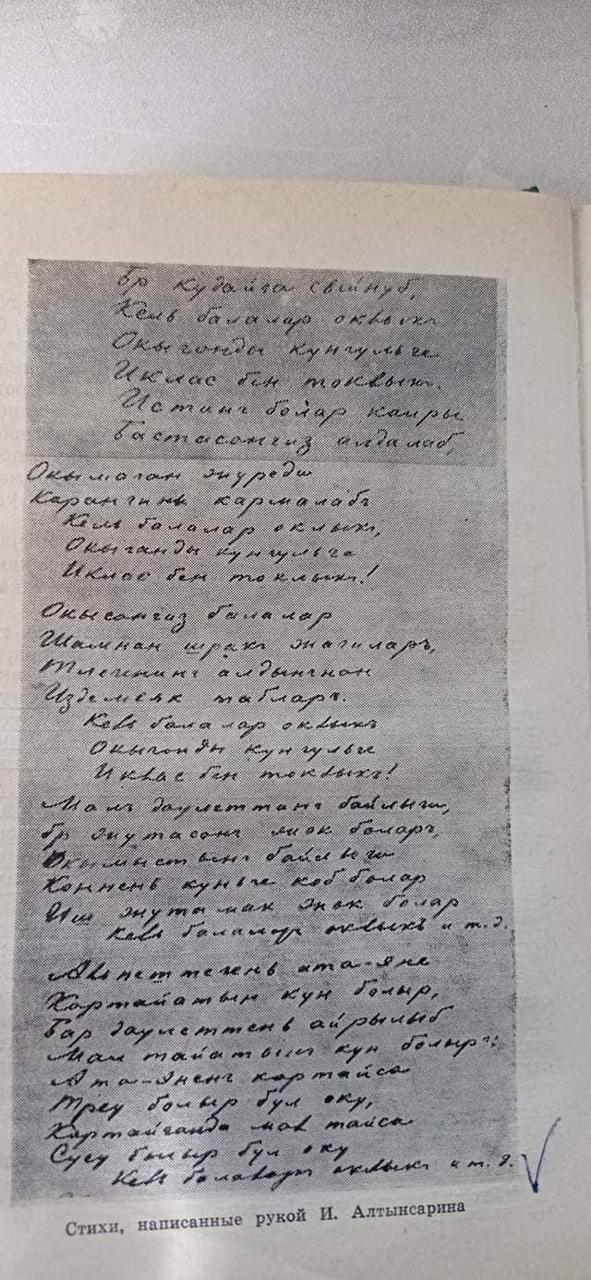 Бр кудайга сыйнуб,
Кель балалар оклыкъ
Окыгонды кунгульге
Иклас бен токлыкъ.
Истинг болар каиры
Бастасонгиз алдалаб,
Окымаган журеды
Карангины кармалабъ
Кель балалар оклыкъ,
Окыганды кунгульге
Иклас бен токлыкъ!
Окысонгиз балалар
Шамнан шракъ жагиларъ,
Тлегининг алдынгнон
Издемьяк табларъ.
Кель балалар оклыкъ
Окыгонды кунгульге
Иклас бен токлыкъ!
Малъ даулеттинг байлыгы,
бр жутасонг жок боларъ,
Окымыстынг байлыгы
Коннень кунге коб болар
Иш жутамак жок болар
Кель балалар оклыкъ и т. д.
ата-яне
Картайатын кун болыр,
Бар даулеттень айрылыб
Мал тайатын кун болыръ:
Ата-яненг картайса
Треу болыр бул оку,
Картайганда мал тайса
Суеу болыр бул оку
Кель балалар оклыкъ и т. д.
Стихи, написанные рукой И. Алтынсарина